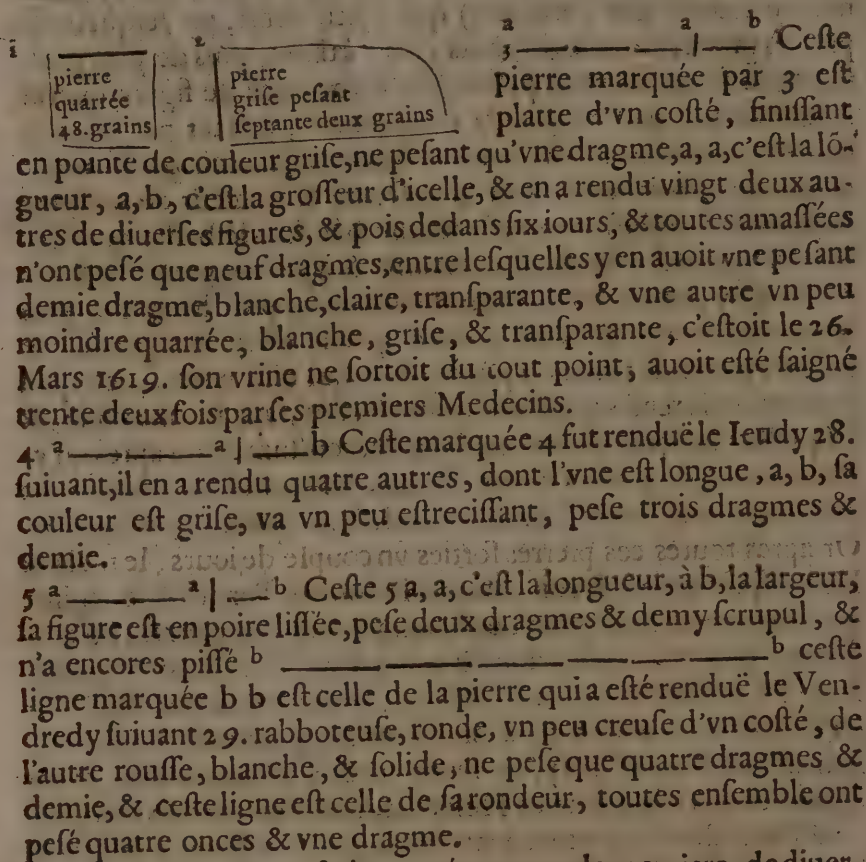 1
pierre
quarrée
48.grains
2
pierre
griſe peſant
ſeptante deux grains
a a b
3 | Ceſte
pierre marquée par 3 eſt
platte d'vn coſté, finiſſant
en pointe de couleur griſe, ne peſant qu'vne dragme, a, a, c'eſt la lõ-
gueur, a, b, c'eſt la groſſeur d'icelle, & en a rendu vingt deux au-
tres de diuerſes figures, & pois dedans ſix iours, & toutes amaſſées
n'ont peſé que neuf dragmes, entre leſquelles y en auoit vne peſant
demie dragme, blanche, claire, tranſparante, & vne autre vn peu
moindre quarrée, blanche, griſe, & tranſparante, c'eſtoit le 26.
Mars 1619. ſon vrine ne ſortoit du tout point, auoit eſté ſaigné
trente deux fois par ſes premiers Medecins.
4 a a | b Ceſte marquée 4 fut renduë le Ieudy 28.
ſuiuant, il en a rendu quatre autres, dont l'vne eſt longue, a, b, ſa
couleur eſt griſe, va vn peu eſtreciſſant, peſe trois dragmes &
demie.
5 a a | b Ceſte 5 a, a, c'eſt la longueur, à b, la largeur,
ſa figure eſt en poire liſſée, peſe deux dragmes & demy ſcrupul, &
n'a encores piſſé b b ceſte
ligne marquée b b eſt celle de la pierre qui a eſté renduë le Ven-
dredy ſuiuant 29. rabboteuſe, ronde, vn peu creuſe d'vn coſté, de
l'autre rouſſe, blanche, & ſolide, ne peſe que quatre dragmes &
demie, & ceſte ligne eſt celle de ſa rondeur, toutes enſemble ont
peſé quatre onces & vne dragme.